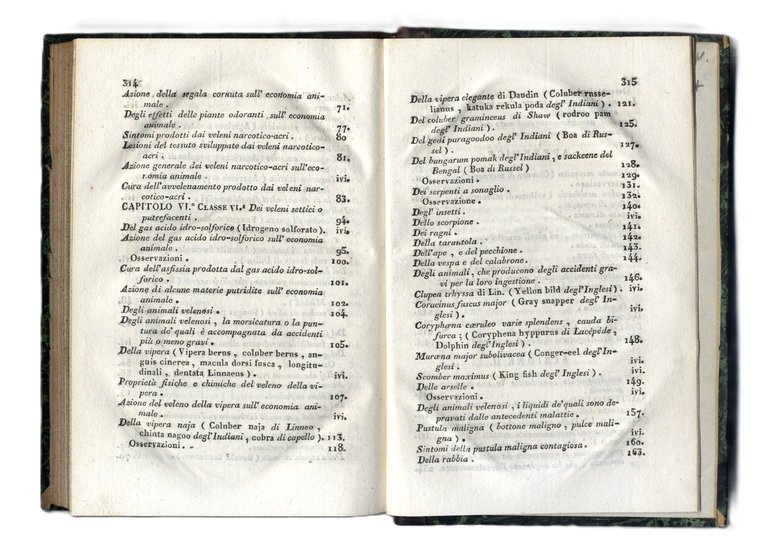 314
Azione della segala cornuta sull' economia ani-
male . 71.
Degli effetti delle piante odoranti sull' economia
animale . 77.
Sintomi prodotti dai veleni narcotico-acri . 80
Lesioni del tessuto sviluppate dai veleni narcotico-
acri . 81.
Azione generale dei veleni narcotico-acri sull'eco-
nomia animale . ivi.
Cura dell'avvelenamento prodotto dai veleni nar-
cotico-acri . 83.
CAPITOLO VI.° CLASSE VI.ª Dei veleni settici o
putrefacenti . 94.
Del gas acido idro-solforico (Idrogeno solforato). ivi.
Azione del gas acido idro-solforico sull' economia
animale . 95.
Osservazioni . 100.
Cura dell'asfissia prodotta dal gas acido idro-sol-
forico . 101.
Azione di alcune materie putridite sull' economia
animale . 102.
Degli animali velenosi . 104.
Degli animali velenosi , la morsicatura o la pun-
tura de' quali è accompagnata da accidenti
più o meno gravi . 105.
Della vipera ( Vipera berus , coluber berus , an-
guis cinerea , macula dorsi fusca , longitu-
dinali , dentata Linnaeus ) . ivi.
Proprietà fisiche e chimiche del veleno della vi-
pera . 107.
Azione del veleno della vipera sull' economia ani-
male . ivi.
Della vipera naja ( Colnber naja di Linneo ,
chinta nagoo degl' Indiani , cobra di capello ) . 113.
Osservazioni . 118.
315
Della vipera elegante di Daudin ( Coluber russe-
lianus , katuka rekula poda degl' Indiani ) . 121.
Del coluber gramineus di Shaw ( rodroo pam
degl' Indiani ) . 125.
Del geni paragoodoo degl' Indiani ( Boa di Rus-
sel ) . 127.
Del bungarum pomak degl' Indiani , e sackeene del
Bengal ( Boa di Russel ) 128.
Osservazioni . 129.
Dei serpenti a sonaglio . 131.
Osservazione . 132.
Degl' insetti . 140.
Dello scorpione . ivi.
Dei ragni . 141.
Della tarantola . 142.
Dell'ape , e del pecchione . 143.
Della vespa e del calabrone . 144.
Degli animali , che producono degli accidenti gra-
vi per la loro ingestione . 146.
Clupea trhyssa di Lin. ( Yellon bild degl'Inglesi ) . ivi.
Coracinus fuscus major ( Gray snapper degl' In-
glesi ) . ivi.
Coryphæna cæruleo varie splendens , cauda bi-
furca ; ( Coryphena hyppurus di Lacépéde ,
Dolphin degl'Inglesi ) . 148.
Murana major subolivacea ( Conger-eel degl' In-
glesi . ivi.
Scomber maximus ( King fish degl' Inglesi ) . ivi.
Delle arselle . 149.
Osservazioni . ivi.
Degli animali velenosi , i liquidi de'quali sono de-
pravati dalle antecedenti malattie . 157.
Pustula maligna ( bottone maligno , pulce mali-
gna ) . ivi.
Sintomi della pustula maligna contagiosa . 160.
Della rabbia . 163.